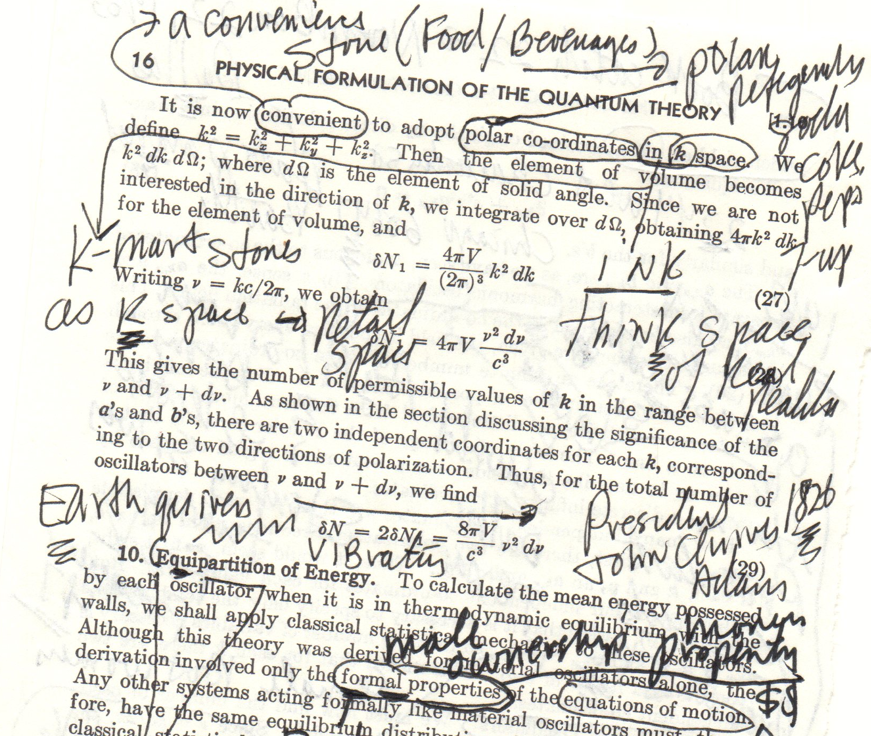 → a convenience
Store (Food / Beverages) → polar
refrigerated
16 PHYSICAL FORMULATION OF THE QUANTUM THEORY
It is now convenient to adopt polar co-ordinates in k space. We
define k² = k²ₓ + k²ᵧ + k²_z. Then the element of volume becomes
k² dk dΩ; where dΩ is the element of solid angle. Since we are not
interested in the direction of k, we integrate over dΩ, obtaining 4πk² dk
for the element of volume, and
K-mart Stores
δN₁ = 4πV/(2π)³ k² dk
INK
(27)
Writing ν = kc/2π, we obtain
as K space → Retail
Space
Think space
of Real
Reality
= 4πV ν² dν/c³
This gives the number of permissible values of k in the range between
ν and ν + dν. As shown in the section discussing the significance of the
a's and b's, there are two independent coordinates for each k, correspond-
ing to the two directions of polarization. Thus, for the total number of
oscillators between ν and ν + dν, we find
Earth quivers
President 1826
John Adams
δN = 2δN₁ = 8πV/c³ ν² dν
(29)
10. Equipartition of Energy. To calculate the mean energy possessed
by each oscillator when it is in thermodynamic equilibrium with the
walls, we shall apply classical statistical mechanics to these oscillators.
male
ownership property
Although this theory was derived for material oscillators alone, the
derivation involved only the formal properties of the equations of motion.
$$
Any other systems acting formally like material oscillators must, there-
fore, have the same equilibrium